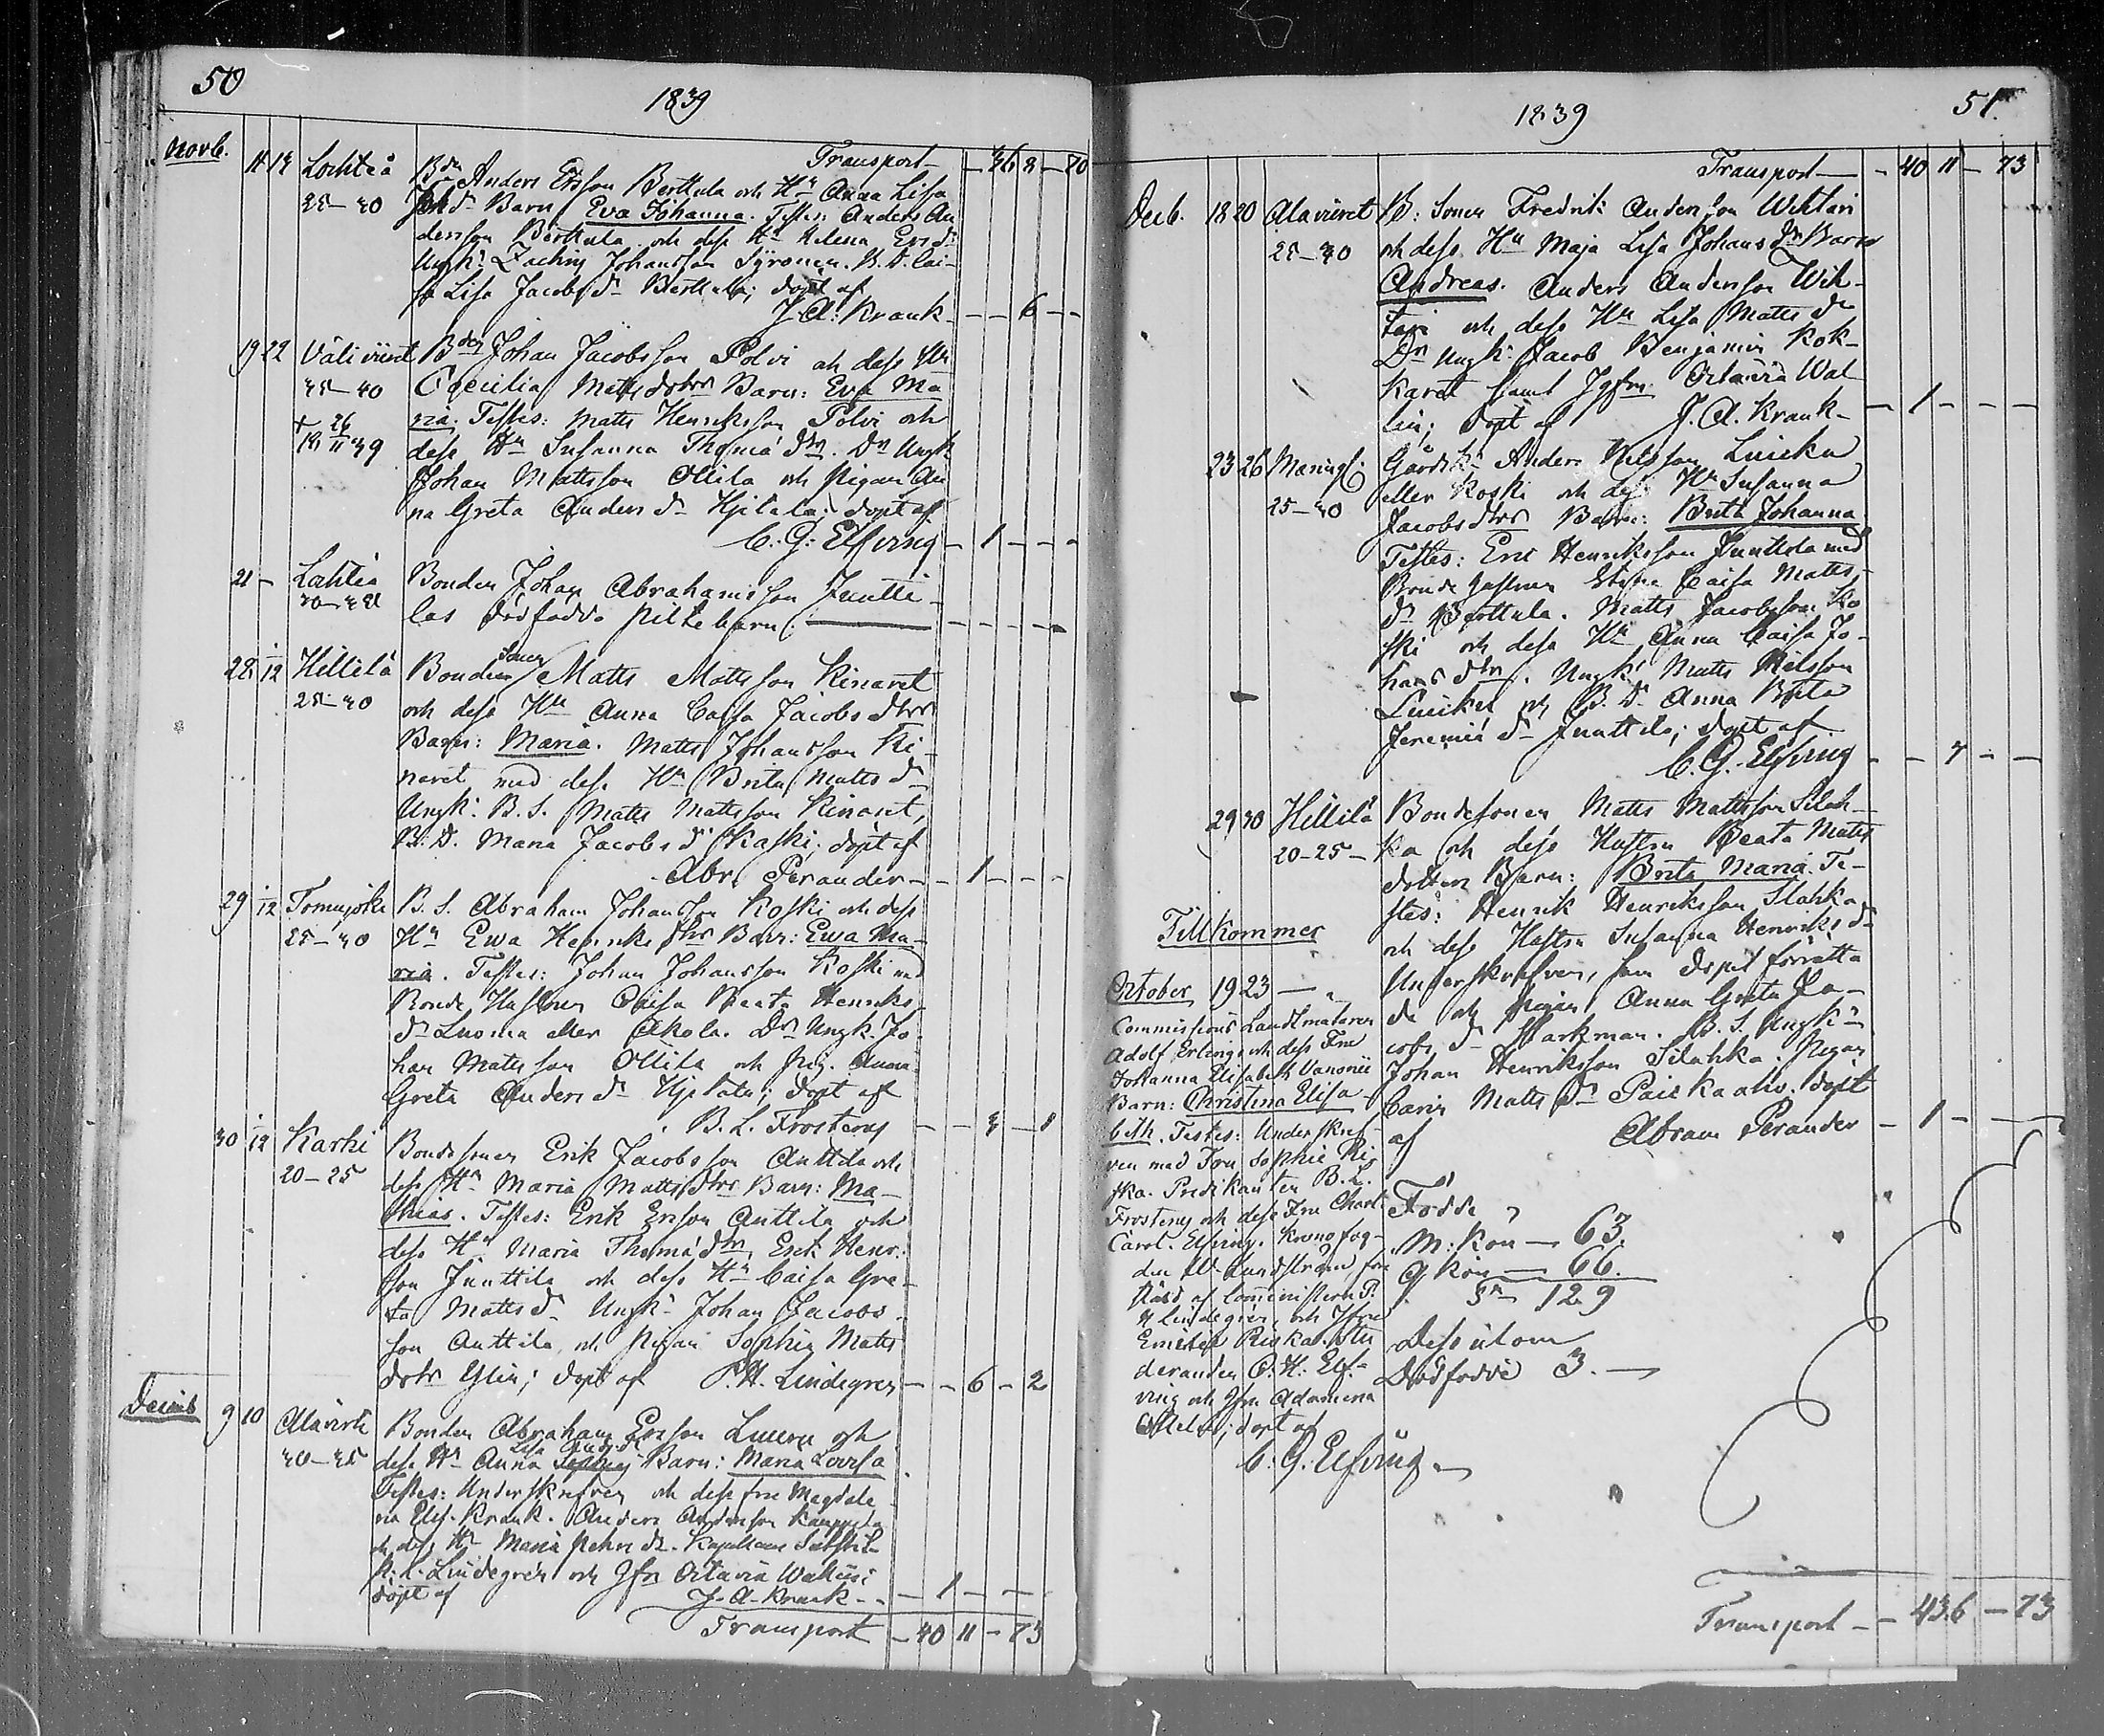 50
1839
Novb.
Transport — 36 8 — 70
14 14 Lochteå Bdn Anders Ersson Berttula och Hu Anna Lisa
25—30 Barn Eva Johanna. Testes: Anders An
dersson Berttula och dess Hu Helena Ersdr
Ungk: Johansson Syronen. B. D. Cai-
sa Lisa Jacobsdr Berttula; döpt af
J. A. Krank — — 6 — —
19 22 Väliviirret Bden Johan Jacobsson Polvi och dess Hu
35—40 Caecilia Mattsdotrs Barn: Eva Ma
† 26/11 39 ria. Testes: Matts Henriksson Polvi och
dess Hu Susanna Thomædtr. Dn Ungk
Johan Mattsson Ollila och Pigan An
na Greta Andersdr Hjitala; döpt af
C. G. Elfving — 1 — — —
21 — Lochteå Bonden Johan Abrahamsson Juntti-
las dödfödda piltebarn — — — — —
28 1/12 Hillilä Bondesonen Matts Mattsson Kinaret
25—30 och dess Hu Anna Caisa Jacobsdtrs
Barn: Maria. Matts Johansson Ki-
naret med dess Hu Brita Mattsdr
Ungk: B. S. Matts Mattsson Kinaret,
B. D. Maria Jacobsdr Kaski; döpt af
Abr. Perander — — 1 — — —
29 1/12 Tomujoki B. S. Abraham Johansson Koski och dess
25—30 Hu Ewa Henriksdtrs Barn: Ewa Ma-
ria. Testes: Johan Johansson Koski med
Bonde Hustrun Caisa Beata Henriks
dr Luoma eller Akola. Dn Ungk. Jo
han Mattsson Ollila och Pig. Anna
Greta Andersdr Hjitala; döpt af
B. L. Frosterus — — 3 — 1
30 1/12 Karhi Bondesonen Erik Jacobsson Anttila och
20—25 dess Hu Maria Mattsdtrs Barn: Ma-
thias. Testes: Erik Ersson Anttila och
dess Hu Maria Thomædtr, Erik Henr.
son Junttila och dess Hu Caisa Gre-
ta Mattsdr Ungk Johan Jacobs-
son Anttila, och Pigan Sophia Matts
dotr Ylin; döpt af P. H. Lindegren — — 6 — 2
Decemb 9 10 Alavirte Bonden Abraham Ersson Luueru och
30—35 dess Hu Anna Lisa Barn: Maria Lovisa
Testes: Underskrefven och dess fru Magdale
na Elis. Krank. Anders Andersson
och dess Hu Maria Pehrsdr. Kapellans
Lindegrén och Jfrn Octavia
döpt af J. A. Krank — — 1 — — —
Transport — 40 11 — 73
51.
1839
Transport — — 40 11 — 73
Decb. 18 20 Alaviirret B: Sonen Fredrik Andersson Wiktari
25—30 och dess Hu Maja Lisa Johansdrs Barn
Andreas. Anders Andersson Wik-
tari och dess Hu Lisa Mattsdr
Dn Ungk: Jacob Benjamin Kok-
karet samt Jgfrn Octavia Wal-
lin; döpt af J. A. Krank — — 1 — — —
23 26 Maringf. Gårdsk: Anders Nilsson Liniku
25—30 eller Koski och dess Hu Susanna
Jacobsdtrs Barn: Brita Johanna.
Testes: Eric Henriksson Junttila med
Bonde hustrun Caisa Matts-
dr Berttula. Matts Jacobsson Ko
ski och dess Hu Anna Caisa Jo-
hansdtr. Ungk: Matts Nilsson
Linikus och B. D. Anna Brita
Jeremiædr Junttila; döpt af
C. G. Elfving — — 7 — —
29 30 Hillilä Bondesonen Matts Mattsson Silah-
20—25 ka och dess Hustru Beata Matts
dotters Barn: Brita Maria. Te-
stes: Henrik Henriksson Silahka
och dess Hustru Susanna Henriksdr
Underskrefven, som dopet förrätta
de och Pigan Anna Greta Ja-
cobsdr Starkman. B. S. Ungk
Johan Henriksson Silahka. Pigan
Carin Mattsdr Paickaaho. döpt
af Abram Perander — 1 — — —
Tillkommer
October 19 23 —
Commissions Landtmätaren
Adolf Erlings och dess Fru
Johanna Elisabeth Vanonii
Barn: Christina Elisa-
beth. Testes: Underskref-
ven med Fru Sophie Ri-
ska. Predikanten B. L.
Frosterus och dess Fru Charl.
Carol. Elfving. Kronofog-
den Lundström fö
städ af Comministern P.
H. Lindegrén, och Jfrn
Emilie Riska. Stu
deranden O. H. Elf-
ving och Jfrn Adamina
döpt af
C. G. Elfving —
Födde
M: kön — 63.
Q kön — 66.
Sa 129
Dessutom
Dödfödde 3. —
Transport — — 43 6 — 73